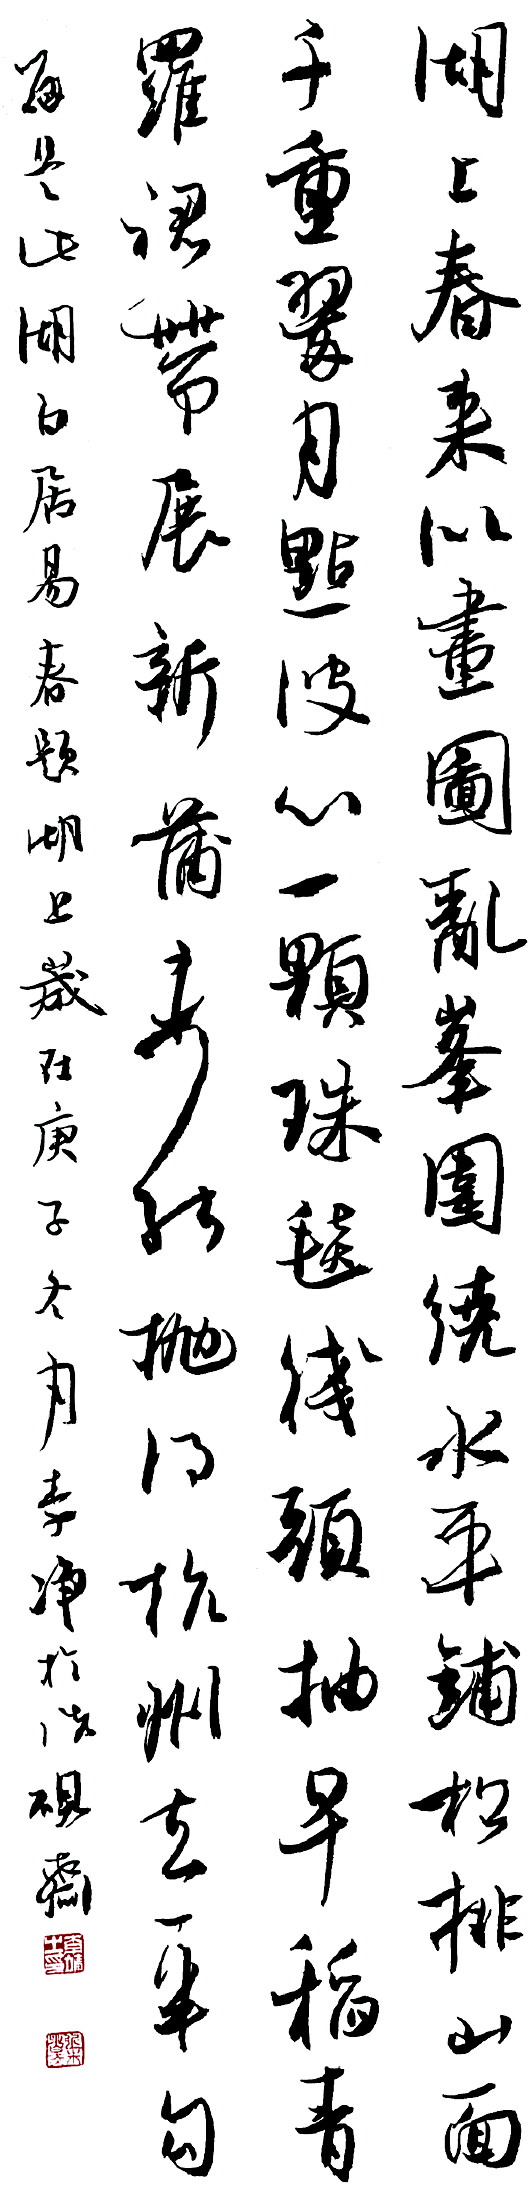 湖上春来似畫圖亂峯圍繞水平鋪松排山面
千重翠月點波心一顆珠毯綫頭抽早稻青
羅裙帶展新蒲未能抛得杭州去一半勾
留是此湖白居易春題湖上歲在庚子冬月李净於洗硯齋